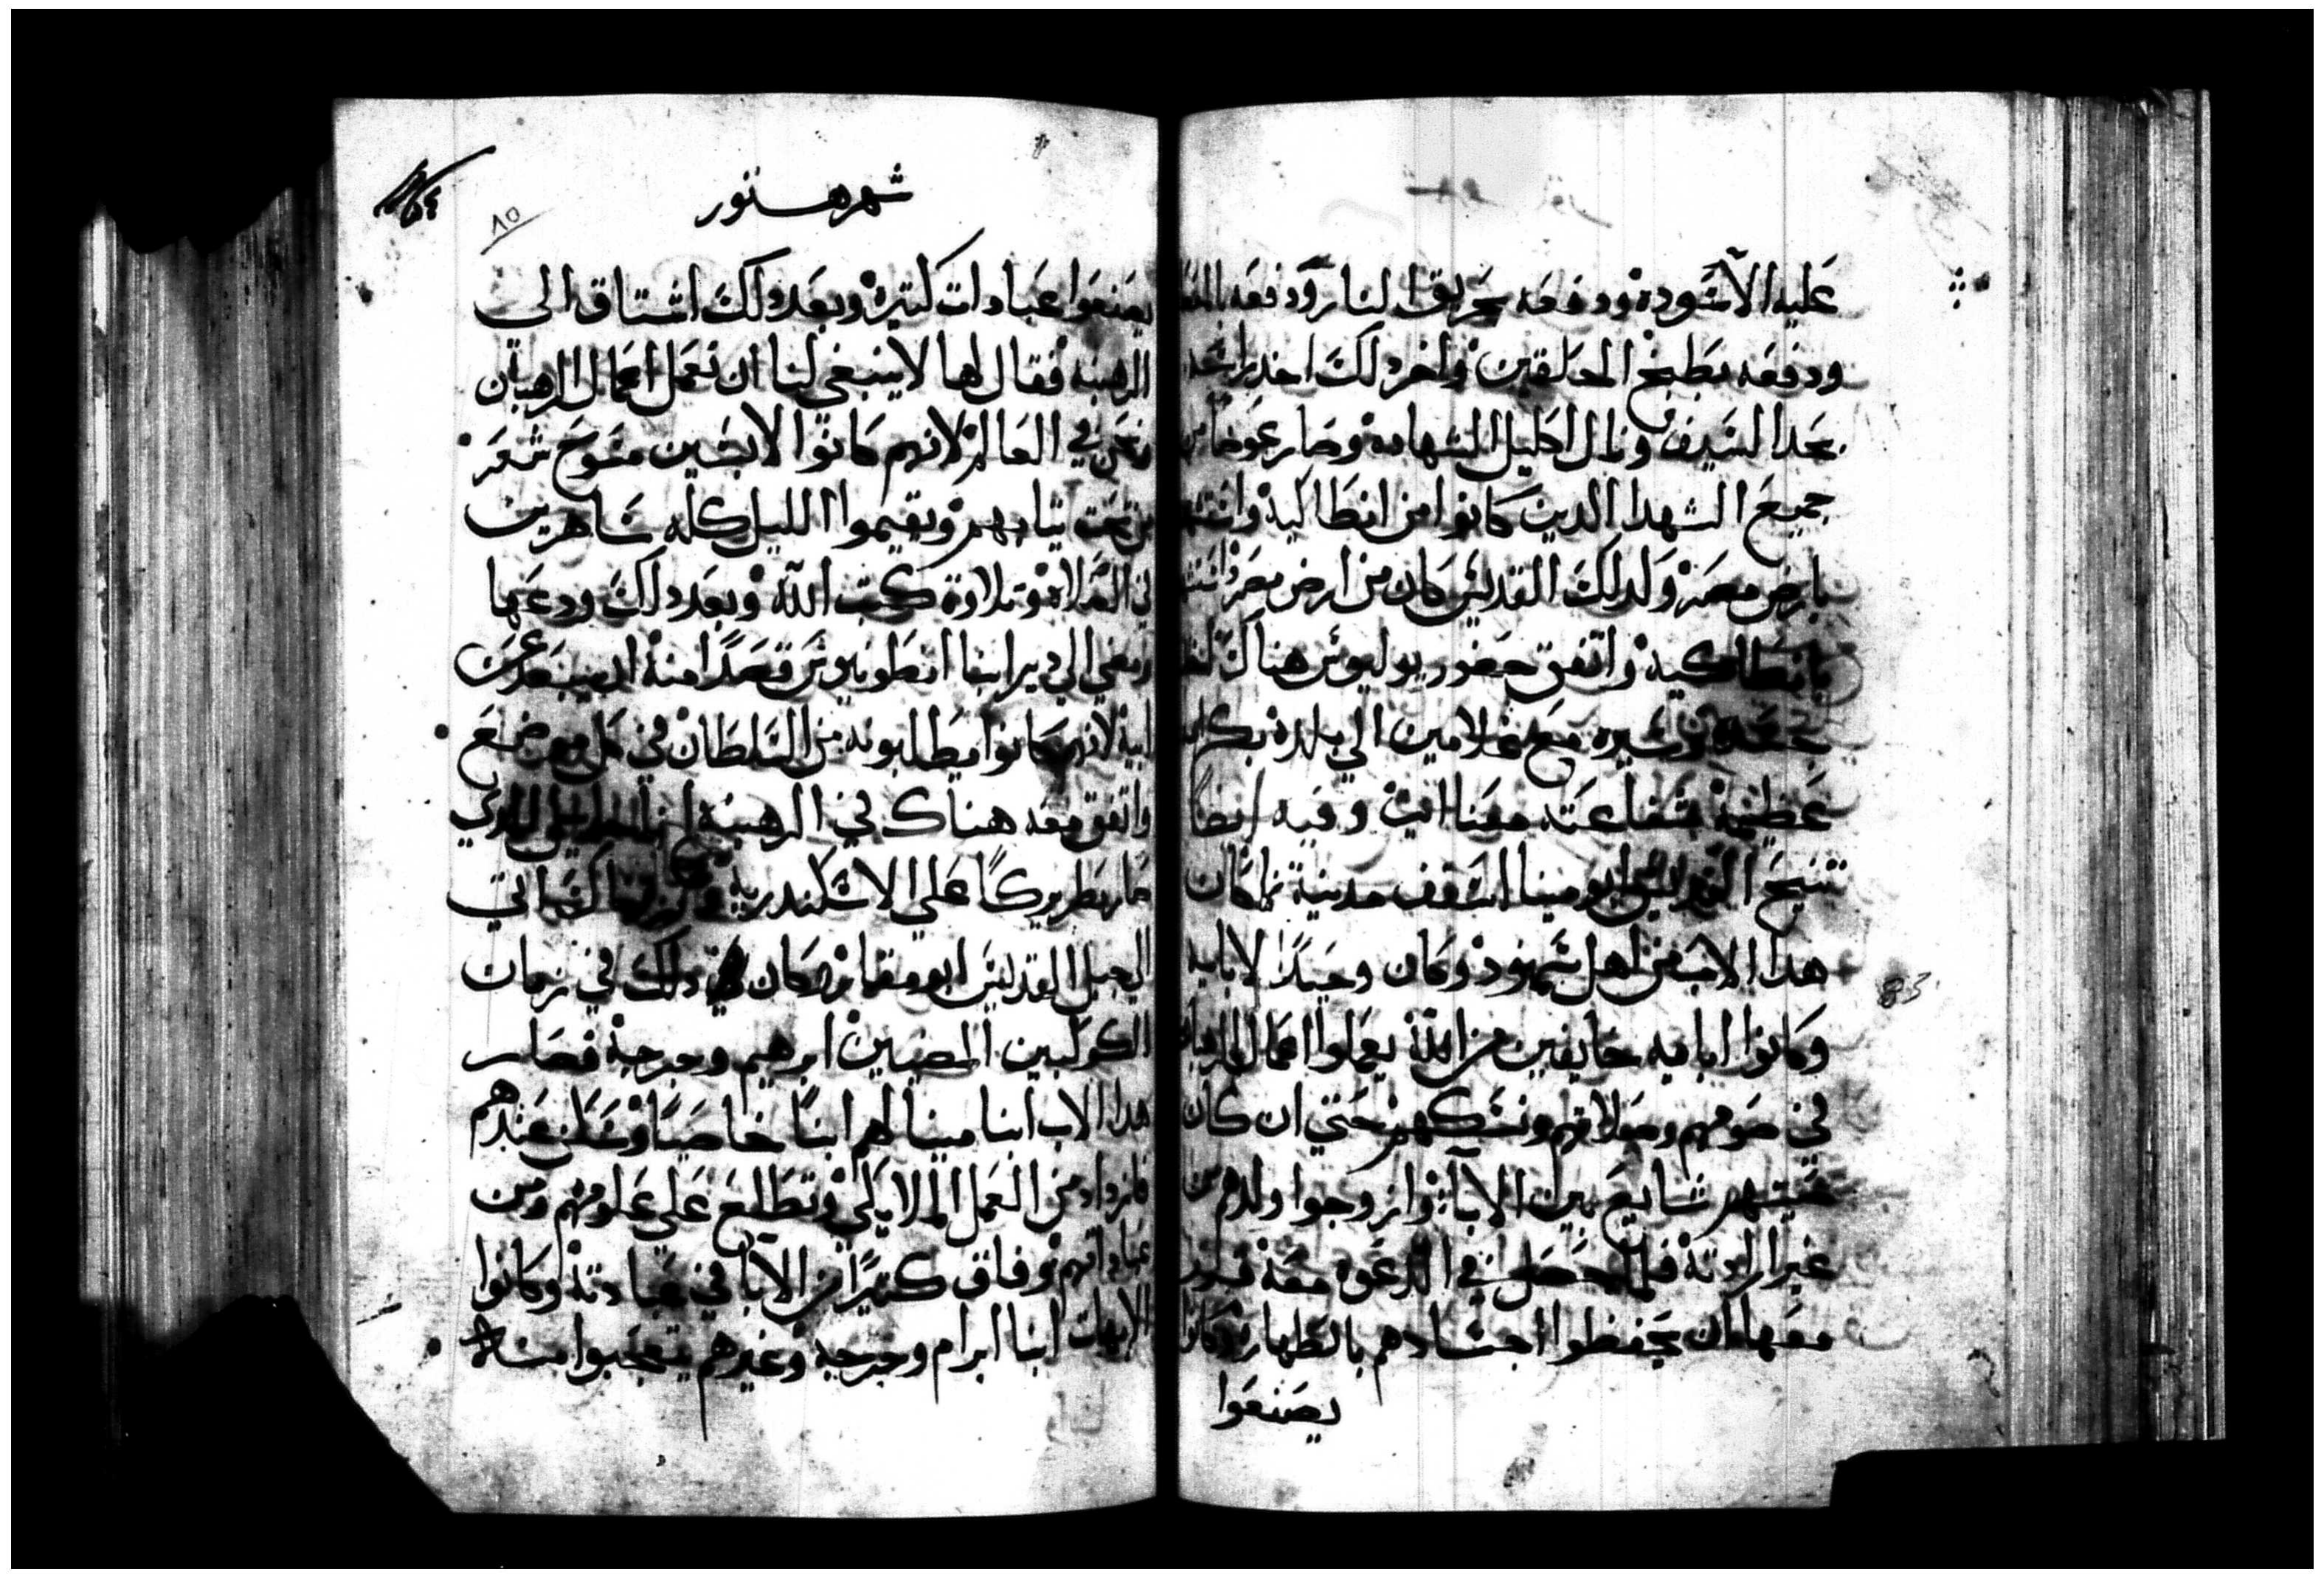 عليه الاسوده ودفعه بحريق النار ودفعه
ودفعه بطبخ الحلقين واخر دلك اخد راسه
بحد السيف ونال اكليل الشهاده وصار عوضا من
جميع الشهدا الدين كانوا من انطاكيه
بارض مصر ولدلك القديس كان من ارض مصر
بانطاكيه واتفق حضور يوليوس هناك
وسيره مع غلامين الي بلده
عظيمة شفاعته معنا امين وفيه ايضا
تنيح القديس ابو مينا اسقف مدينة تما كان
هدا الاب من اهل سمنود وكان وحيدا لابايه
وكانوا ابايه خايفين من الله يعملوا اعمال الرهبان
في صومهم وصلاتهم ونسكهم حتي ان كان
شايع بين الابا وازوجوا ولدهم من
غير ارادته فلما حصل في الدعوه معه
معها ان يحفظوا اجسادهم بالطهاره وكانوا
يصنعوا
شهر هتور
٨٥
يصنعوا عبادات كتيره وبعد دلك اشتاق الي
الرهبنه فقال لها لا ينبغي لنا ان نعمل اعمال الرهبان
ونحن في العالم لانهم كانوا لابسين مسوح شعر
من تحت تيابهم ويقيموا الليل كله ساهرين
في الصلاه وتلاوة كتب الله وبعد دلك ودعها
ومضي الي دير ابنا انطونيوس قصدا منه ان يبعد عن
ابيه لانهم كانوا يطلبونه من السلطان في كل موضع
واتفق معه هناك في الرهبنه الدي
صار بطريركا علي الاسكندريه
الجبل القديس ابو مقار وكان دلك في زمان
الكوكبين المضيين ابرهيم وجرجه فصار
هدا الاب ابنا مينا لهم ابنا خاصيا وسكن عندهم
فازداد من العمل الملايكي وتطلع علي علومهم ومن
عباداتهم وفاق كتيرا من الابا في عبادته وكانوا
الابهات ابنا ابرام وجرجه وغيرهم يتعجبوا منه
83